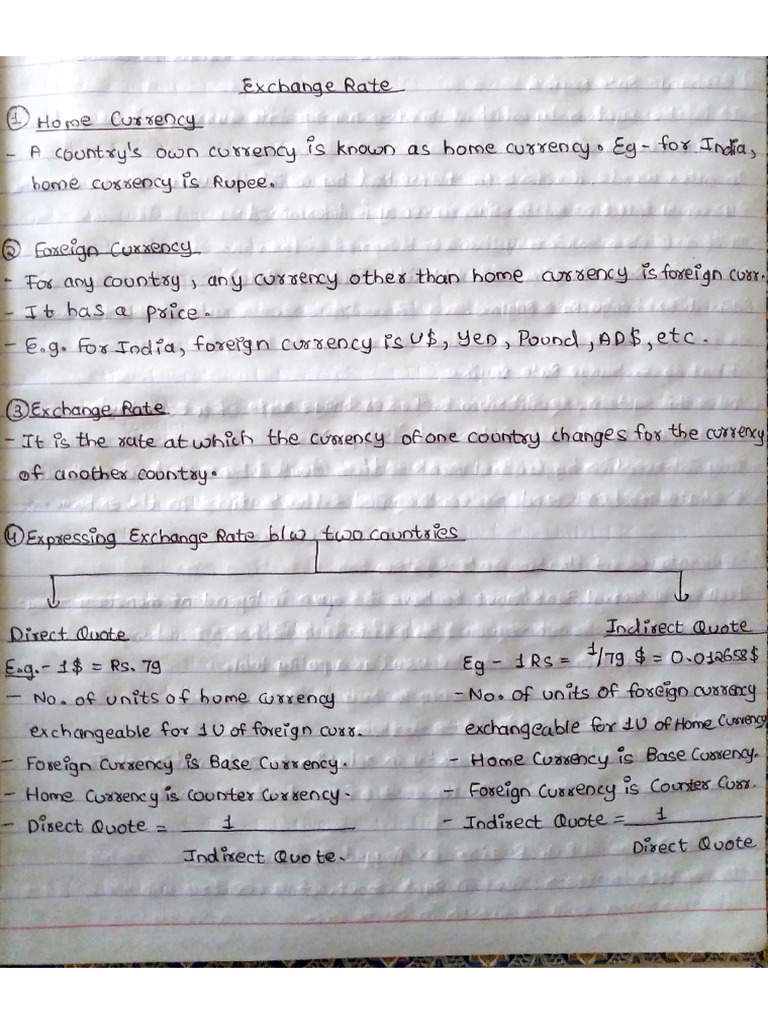 Exchange Rate
① Home Currency
- A country's own currency is known as home currency. Eg - for India,
home currency is Rupee.
② Foreign Currency
- For any country, any currency other than home currency is foreign curr.
- It has a price.
- E.g. For India, foreign currency is U$, Yen, Pound, AD$, etc.
③ Exchange Rate
- It is the rate at which the currency of one country changes for the currency
of another country.
④ Expressing Exchange Rate b/w two countries
Direct Quote
E.g.- 1$ = Rs. 79
- No. of units of home currency
exchangeable for 1U of foreign curr.
- Foreign Currency is Base Currency.
- Home Currency is counter currency.
- Direct Quote = 1
Indirect Quote.
Indirect Quote
Eg - 1 Rs = 1/79 $ = 0.012658$
- No. of units of foreign currency
exchangeable for 1U of Home Currency
- Home Currency is Base Currency.
- Foreign Currency is Counter Curr.
- Indirect Quote = 1
Direct Quote